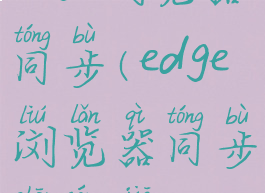 tóng bù
同步(edge
liú lǎn qì tóng bù
浏览器同步